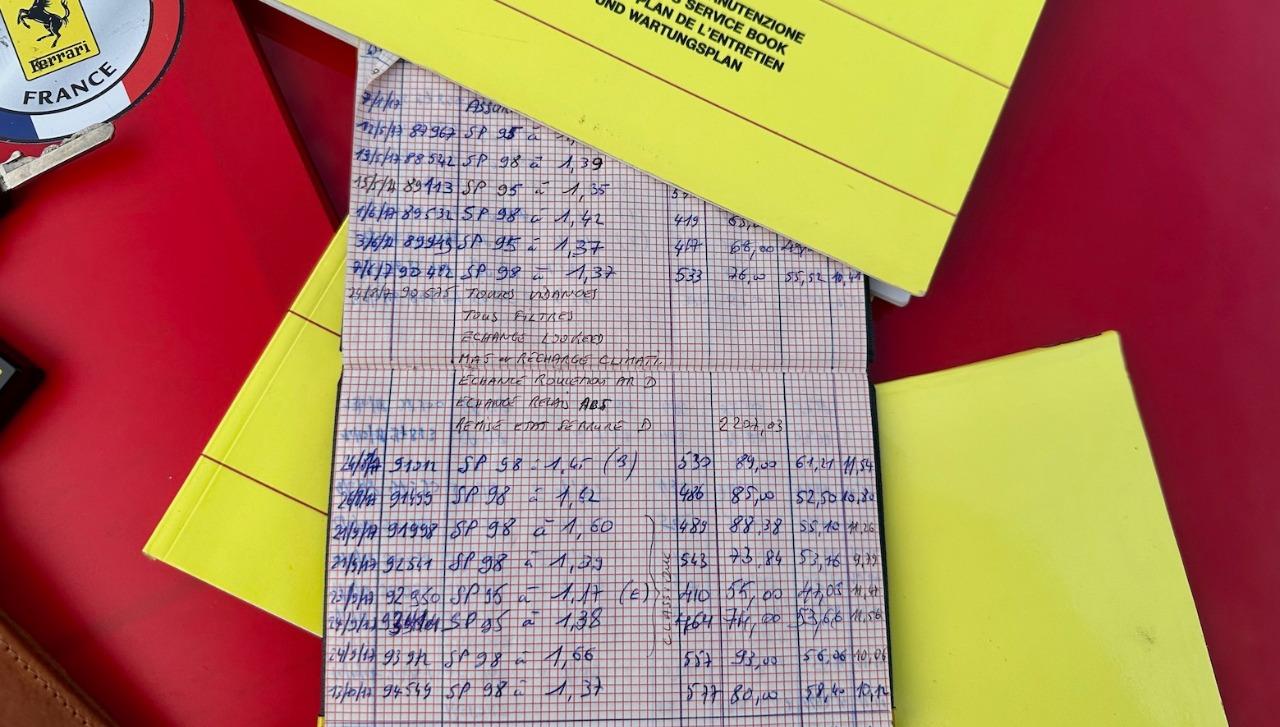 Ferrari
FRANCE
SERVICE BOOK
PLAN DE L'ENTRETIEN
UND WARTUNGSPLAN
12/5/17 87967 SP 95 à
13/5/17 88542 SP 98 à 1,39
15/5/17 89113 SP 95 à 1,35
1/6/17 89532 SP 98 à 1,42 419
3/6/17 89949 SP 95 à 1,37 417 68,00
7/6/17 90482 SP 98 à 1,37 533 76,00 55,52
90575 TOUTES VIDANGES
TOUS FILTRES
ECHANGE
RECHARGE CLIMATI.
ECHANGE ROULEMENT AR D
ECHANGE RELAIS ABS
REMISE ETAT SERRURE D 2207,03
91012 SP 98 à 1,45 (3) 530 89,00 61,21 11,54
91499 SP 98 à 1,62 486 85,00 52,50 10,80
21/9/17 91998 SP 98 à 1,60 489 88,38 55,10 11,26
21/9/17 92541 SP 98 à 1,39 543 73,84 53,16 9,79
23/9/17 92950 SP 95 à 1,17 (E) 410 55,00 47,05
SP 95 à 1,38 464 74,00 53,66 11,56
24/9/17 SP 98 à 1,66 557 93,00 56,06 10,06
13/10/17 94549 SP 98 à 1,37 577 80,00 58,40 10,12